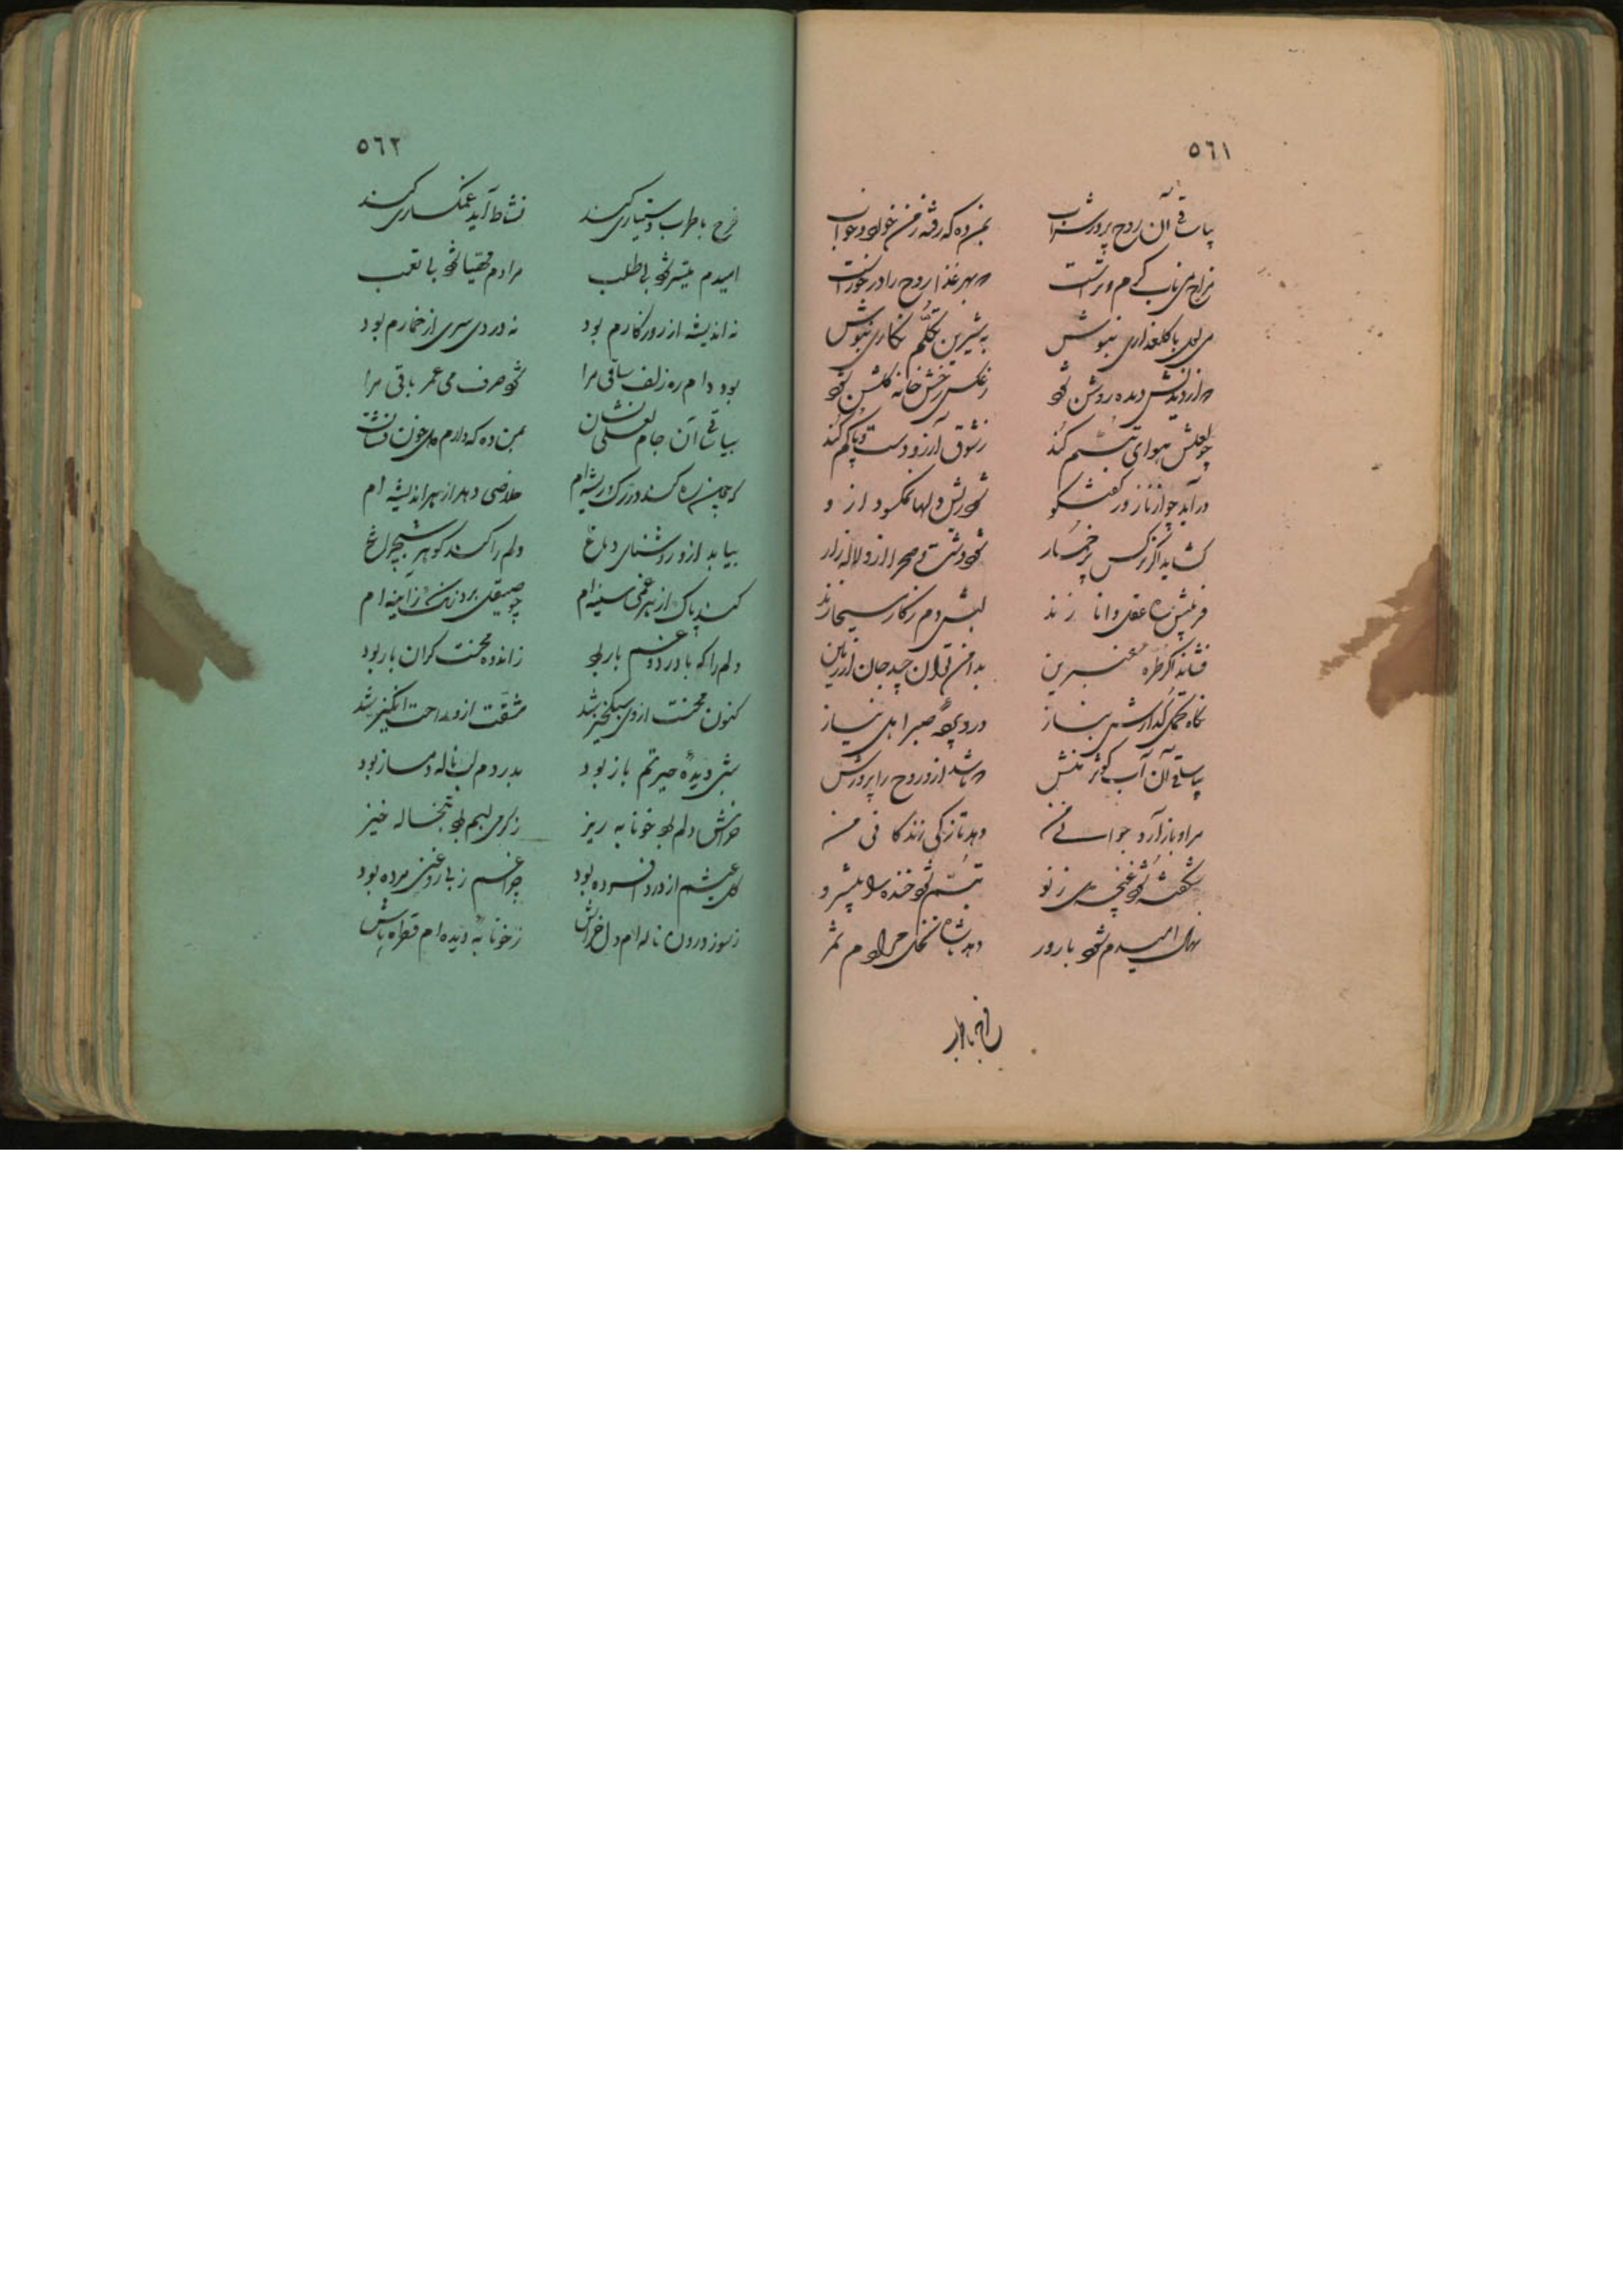 ٥٦١
بیا ساقی آن روح پرور شراب بمن ده که رفته ز من خورد و خواب
مزاج می ناب گرم و تر است بهر غذا روح را در خور است
می لعل با گلعذاری بنوش به شیرین تکلم نگاری بنوش
که از دیدنش دیده روشن شود ز عکس رخش خانه گلشن شود
چو لعلش هوای تبسم کند ز شوق آرزو دست و پا گم کند
در آید چو از ناز در گفتگو شود ریش دلها نمکسود ازو
گشاید اگر نرگس پر خمار شود دشت و صحرا ازو لاله زار
فریبش ره عقل دانا زند لبش دم ز کار مسیحا زند
فشاند اگر طره عنبرین بدامن توان چید جان از زمین
نگاه تحمل گدازش بناز درد پرده صبر اهل نیاز
بیا ساقی آن آب کوثر منش که باشد ازو روح را پرورش
مرا باز آرد جوانی من دهد تازگی زندگانی من
شکفته شود غنچه دل ز نو تبسم شود خنده را پیشرو
نهال امیدم شود بارور دهد شاخ نخل مرادم ثمر
فرح با طرب
٥٦٢
فرح با طرب دستیاری کند نشاط آید و غمگساری کند
امیدم میسر شود با طلب مرادم مهیا شود با تعب
نه اندیشه از روزگارم بود نه درد سری از خمارم بود
بود دام ره زلف ساقی مرا شود صرف می عمر باقی مرا
بیا ساقی آن جام لعلی نشان بمن ده که دارم دل خون فشان
که چون ره کند در رگ و ریشه ام خلاصی دهد از هر اندیشه ام
بیابد ازو روشنای دماغ دلم را کند گوهر شبچراغ
کند پاک از هر غمی سینه ام چو صیقل برد زنگ ز آیینه ام
دلم را که با درد و غم یار بود ز اندوه محنت گران بار بود
کنون محنت از وی سبکخیز شد مشقت ازو راحت انگیز شد
شبی دیده حیرتم باز بود بدردم لب ناله دمساز بود
خراش دلم بود خونابه ریز ز گرمی لبم بود تبخاله خیز
گل عیشم از درد افسرده بود چراغم ز بی روغنی مرده بود
ز سوز درون ناله ام دل خراش ز خونابه دیده ام قطره پاش